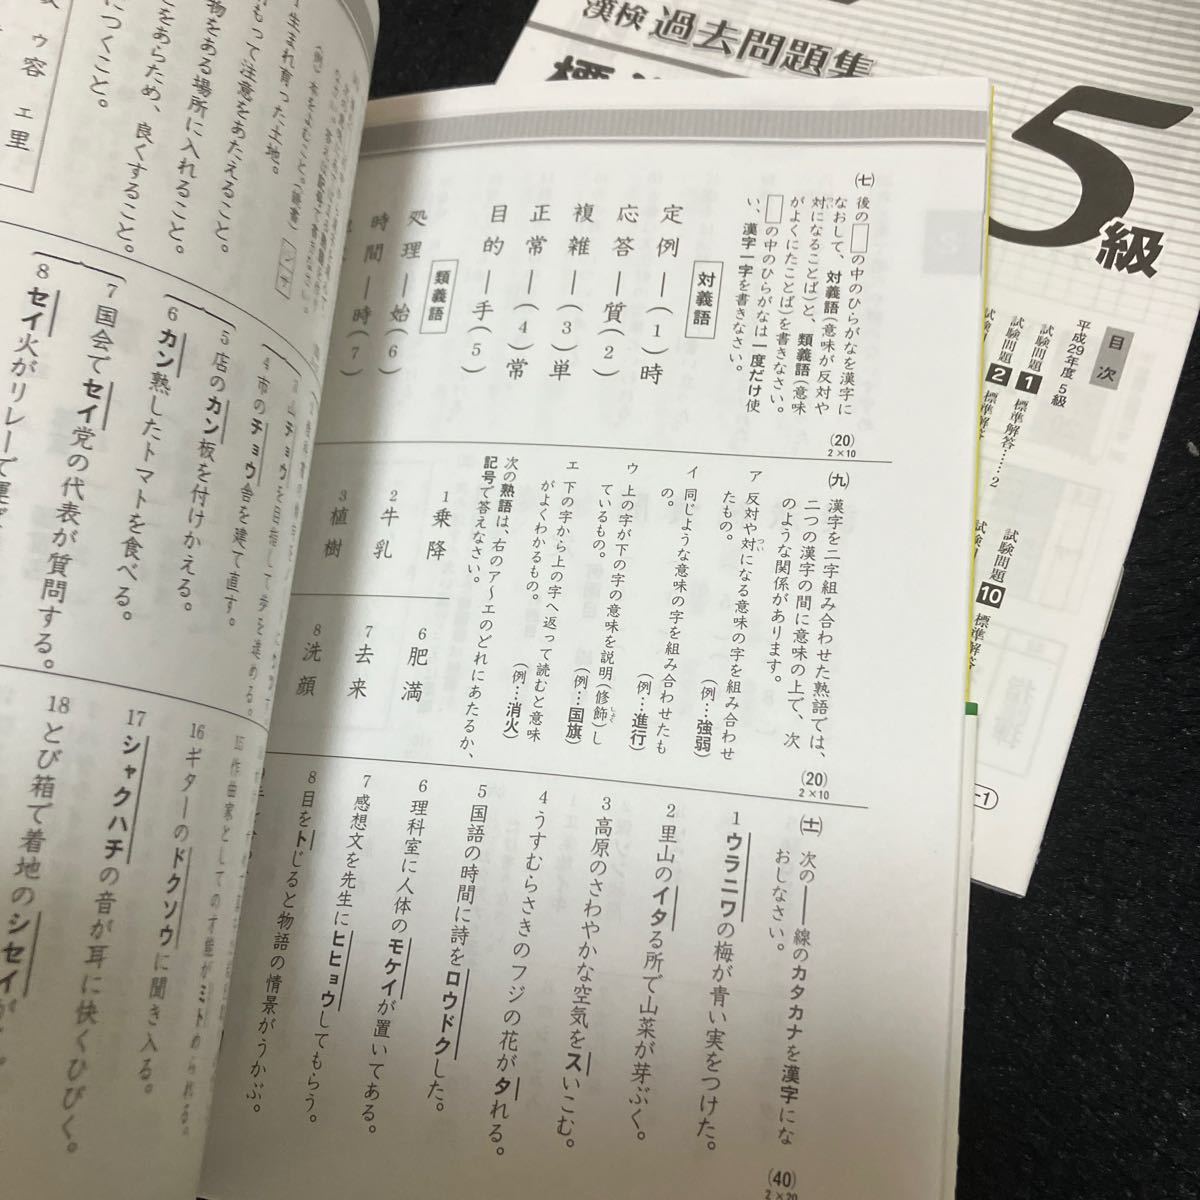 漢検 過去問題集
5級
目次
平成29年度 5級
試験問題 1 標準解答……2
試験問題 2 標準解答
試験問題 10 標準解答
㈦ 後の□の中のひらがなを漢字に
なおして、対義語(意味が反対や
対になることば)と、類義語(意味
がよくにたことば)を書きなさい。
□の中のひらがなは一度だけ使
い、漢字一字を書きなさい。
(20)
2×10
対義語
定例―(1)時
応答―質(2)
複雑―(3)単
正常―(4)常
目的―手(5)
類義語
処理―始(6)
時間―時(7)
㈨ 漢字を二字組み合わせた熟語では、
二つの漢字の間に意味の上で、次
のような関係があります。
(20)
2×10
ア 反対や対になる意味の字を組み合わせ
たもの。 (例…強弱)
イ 同じような意味の字を組み合わせたも
の。 (例…進行)
ウ 上の字が下の字の意味を説明(修飾)し
ているもの。 (例…国旗)
エ 下の字から上の字へ返って読むと意味
がよくわかるもの。 (例…消火)
次の熟語は、右のア〜エのどれにあたるか、
記号で答えなさい。
1 乗降
2 牛乳
3 植樹
6 肥満
7 去来
8 洗顔
(十一) 次の――線のカタカナを漢字にな
おしなさい。
(40)
2×20
1 ウラニワの梅が青い実をつけた。
2 里山のイタる所で山菜が芽ぶく。
3 高原のさわやかな空気をスいこむ。
4 うすむらさきのフジの花がタれる。
5 国語の時間に詩をロウドクした。
6 理科室に人体のモケイが置いてある。
7 感想文を先生にヒヒョウしてもらう。
8 目をトじると物語の情景がうかぶ。
(例) 本をよむこと。(読書)
生まれ育った土地。
もって注意をあたえること。
物をある場所に入れること。
をあらため、良くすること。
につくこと。
ゥ容 ェ里
4 市のチョウ舎を建て直す。
5 店のカン板を付けかえる。
6 カン熟したトマトを食べる。
7 国会でセイ党の代表が質問する。
8 セイ火がリレーで運ば
16 ギターのドクソウに聞き入る。
17 シャクハチの音が耳に快くひびく。
18 とび箱で着地のシセイが